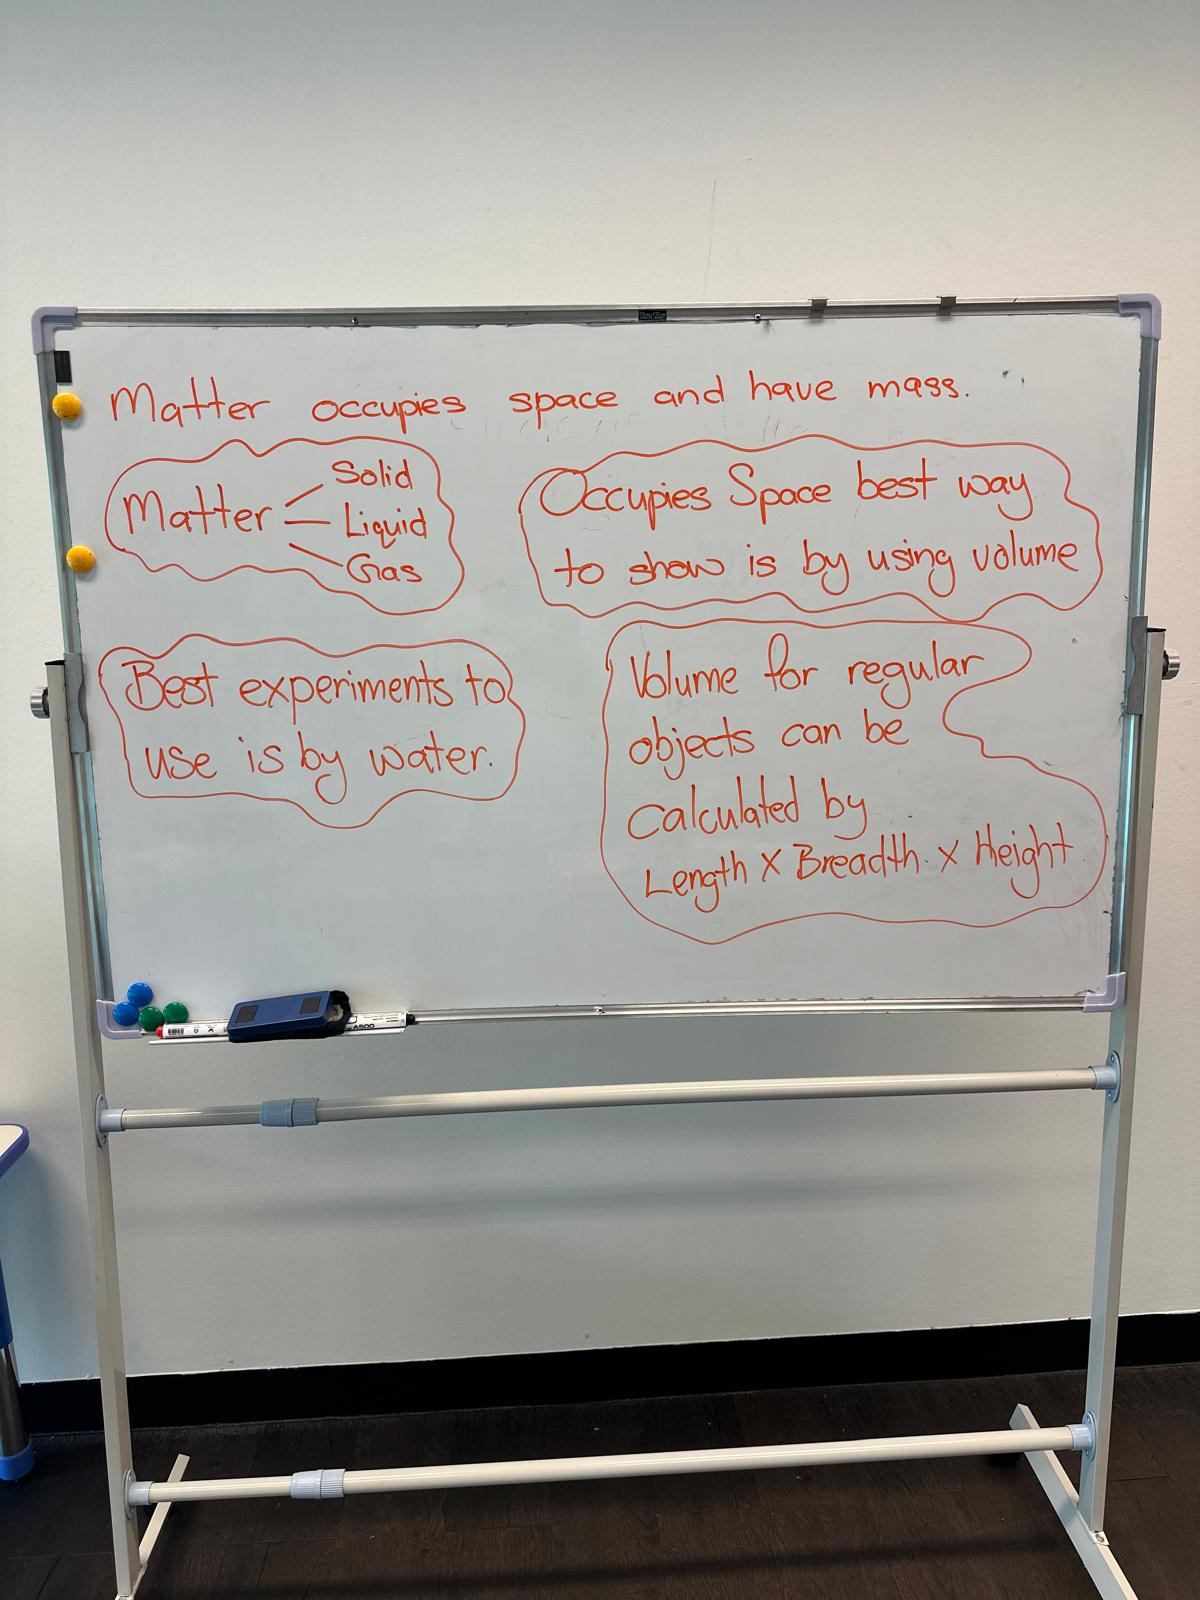 Matter occupies space and have mass.
Matter
Solid
Liquid
Gas
Occupies Space best way
to show is by using volume
Best experiments to
use is by water.
Volume for regular
objects can be
calculated by
Length x Breadth x Height
A500